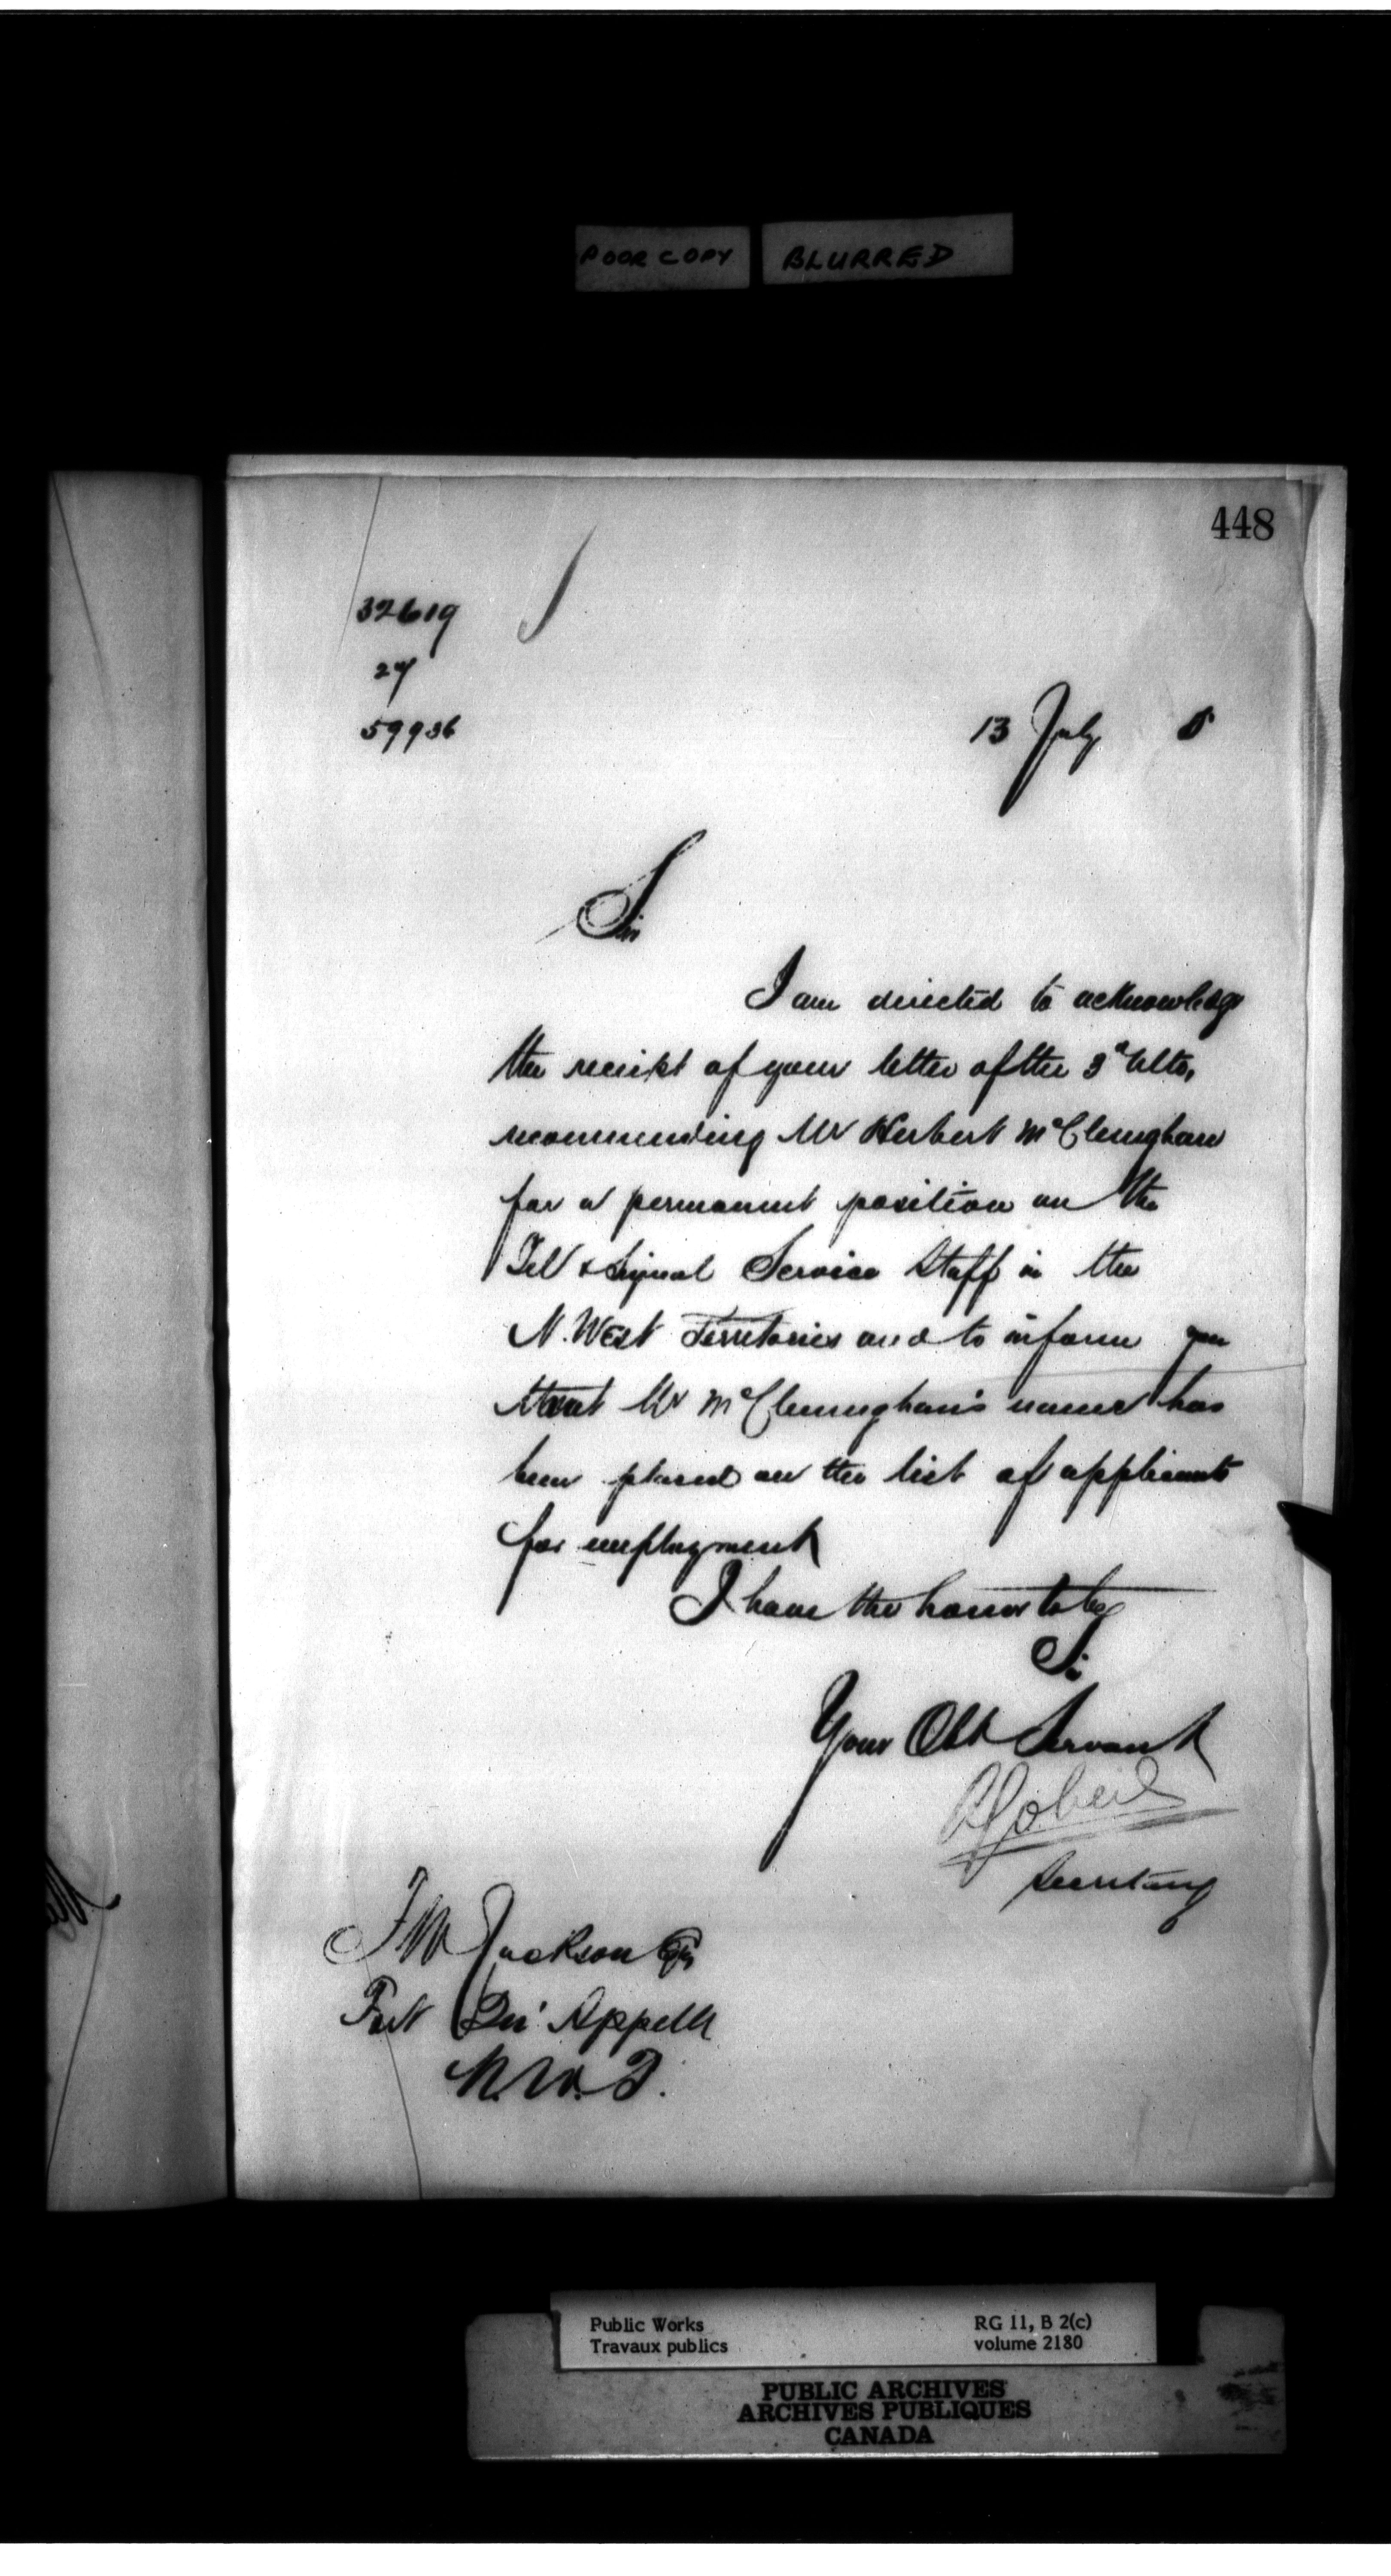 POOR COPY BLURRED
448
32619
27
59936
13 July 5
Sir
I am directed to acknowledge
the receipt of your letter of the 3d Ulto,
recommending Mr Herbert McClenaghan
for a permanent position on the
Tel & Signal Service Staff in the
N. West Territories and to inform you
that Mr McClenaghan's name has
been placed on the list of applicants
for employment
I have the honor to be
Sir
Your Obt Servant
A Gobeil
Secretary
Jackson Esq
Fort Qu'Appelle
N.W.T.
Public Works RG 11, B 2(c)
Travaux publics volume 2180
PUBLIC ARCHIVES
ARCHIVES PUBLIQUES
CANADA